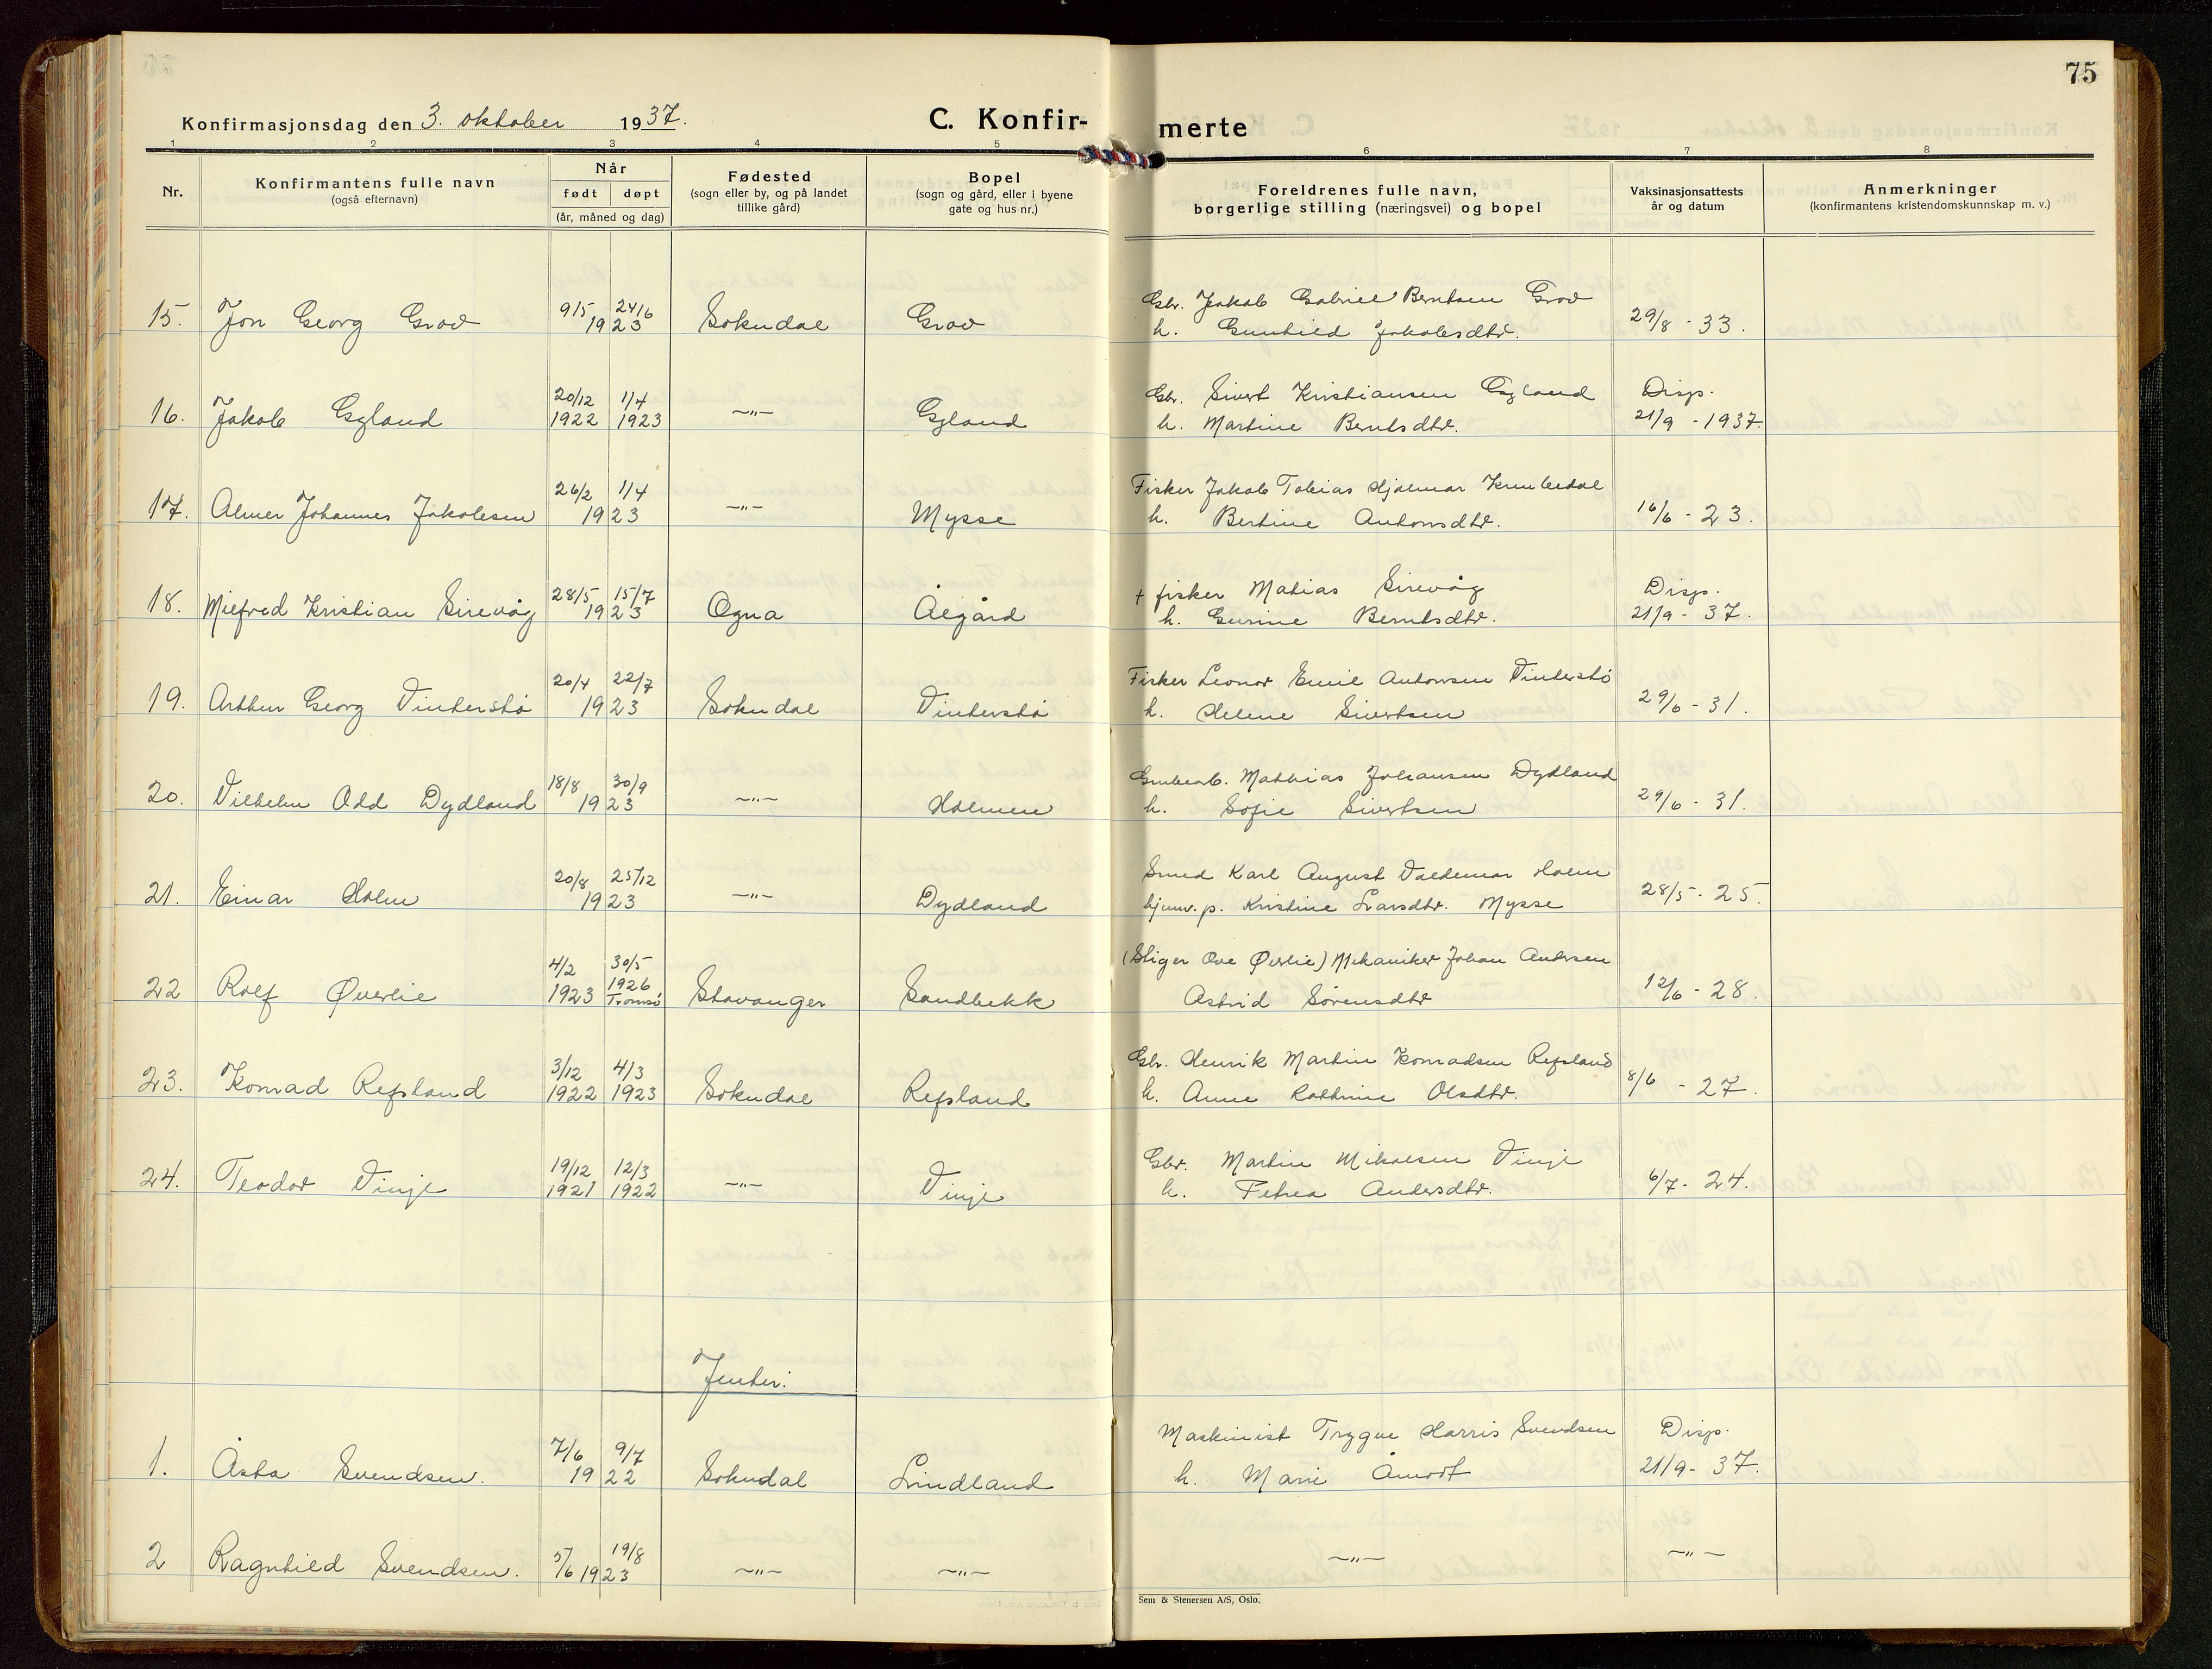 75
Konfirmasjonsdag den 3. oktober 1937.
C. Konfir-merte
1 2 3 4 5 6 7 8
Nr.
Konfirmantens fulle navn
(også efternavn)
Når
født døpt
(år, måned og dag)
Fødested
(sogn eller by, og på landet
tillike gård)
Bopel
(sogn og gård, eller i byene
gate og hus nr.)
Foreldrenes fulle navn,
borgerlige stilling (næringsvei) og bopel
Vaksinasjonsattests
år og datum
Anmerkninger
(konfirmantens kristendomskunnskap m. v.)
9/5 24/6 Gbr. Jakob Gabriel Berntsen Grov
15. Jon Georg Grov 1923 Sokndal Grov h. Gunhild Jakobsdtr. 29/8 - 33.
20/12 1/4 Gbr. Sivert Kristiansen Egland Disp.
16. Jakob Egland 1922 1923 —"— Egland h. Martine Berntsdtr. 21/9 - 1937.
26/2 1/4 Fisker Jakob Tobias Hjalmar Knubedal
17. Almer Johannes Jakobsen 1923 —"— Mysse h. Bertine Antonsdtr. 16/6 - 23.
28/5 15/7 + fisker Matias Sirevåg Disp.
18. Mielfred Kristian Sirevåg 1923 Ogna Ålgård h. Gurine Berntsdtr. 21/9 - 37.
20/4 22/7 Fisker Leonor Emil Antonsen Vinterstø
19. Arthur Georg Vinterstø 1923 Sokndal Vinterstø h. Helene Sivertsen 29/6 - 31.
18/8 30/9 Grubearb. Mathias Johansen Dydland
20. Vilhelm Odd Dydland 1923 —"— Holmen h. Sofie Sivertsen 29/6 - 31.
20/8 25/12 Smed Karl August Valdemar Holm
21. Einar Holm 1923 —"— Dydland hjemv. p. Kristine Larsdtr. Mysse 28/5 - 25.
4/2 30/5 (Stiger Ove Øverlie) Mekaniker Johan Andersen
22 Rolf Øverlie 1923 1926 Tromsø Stavanger Sandbekk Astrid Sørensdtr 12/6 - 28.
3/12 4/3 Gbr. Henrik Martin Konradsen Refsland
23. Konrad Refsland 1922 1923 Sokndal Refsland h. Anne Kathrine Olsdtr. 8/6 - 27.
19/12 12/3 Gbr. Martin Mikalsen Vinje
24. Teodor Vinje 1921 1922 —"— Vinje h. Petrea Andersdtr. 6/7 - 24.
Jenter:
7/6 9/7 Maskinist Trygve Harris Svendsen Disp.
1. Åsta Svendsen. 1922 Sokndal Lindland h. Marie Åmodt 21/9 - 37.
19/8 —"— —"—
2 Ragnhild Svendsen. 5/6 1923 —"— —"—
Sem & Stenersen A/S, Oslo.